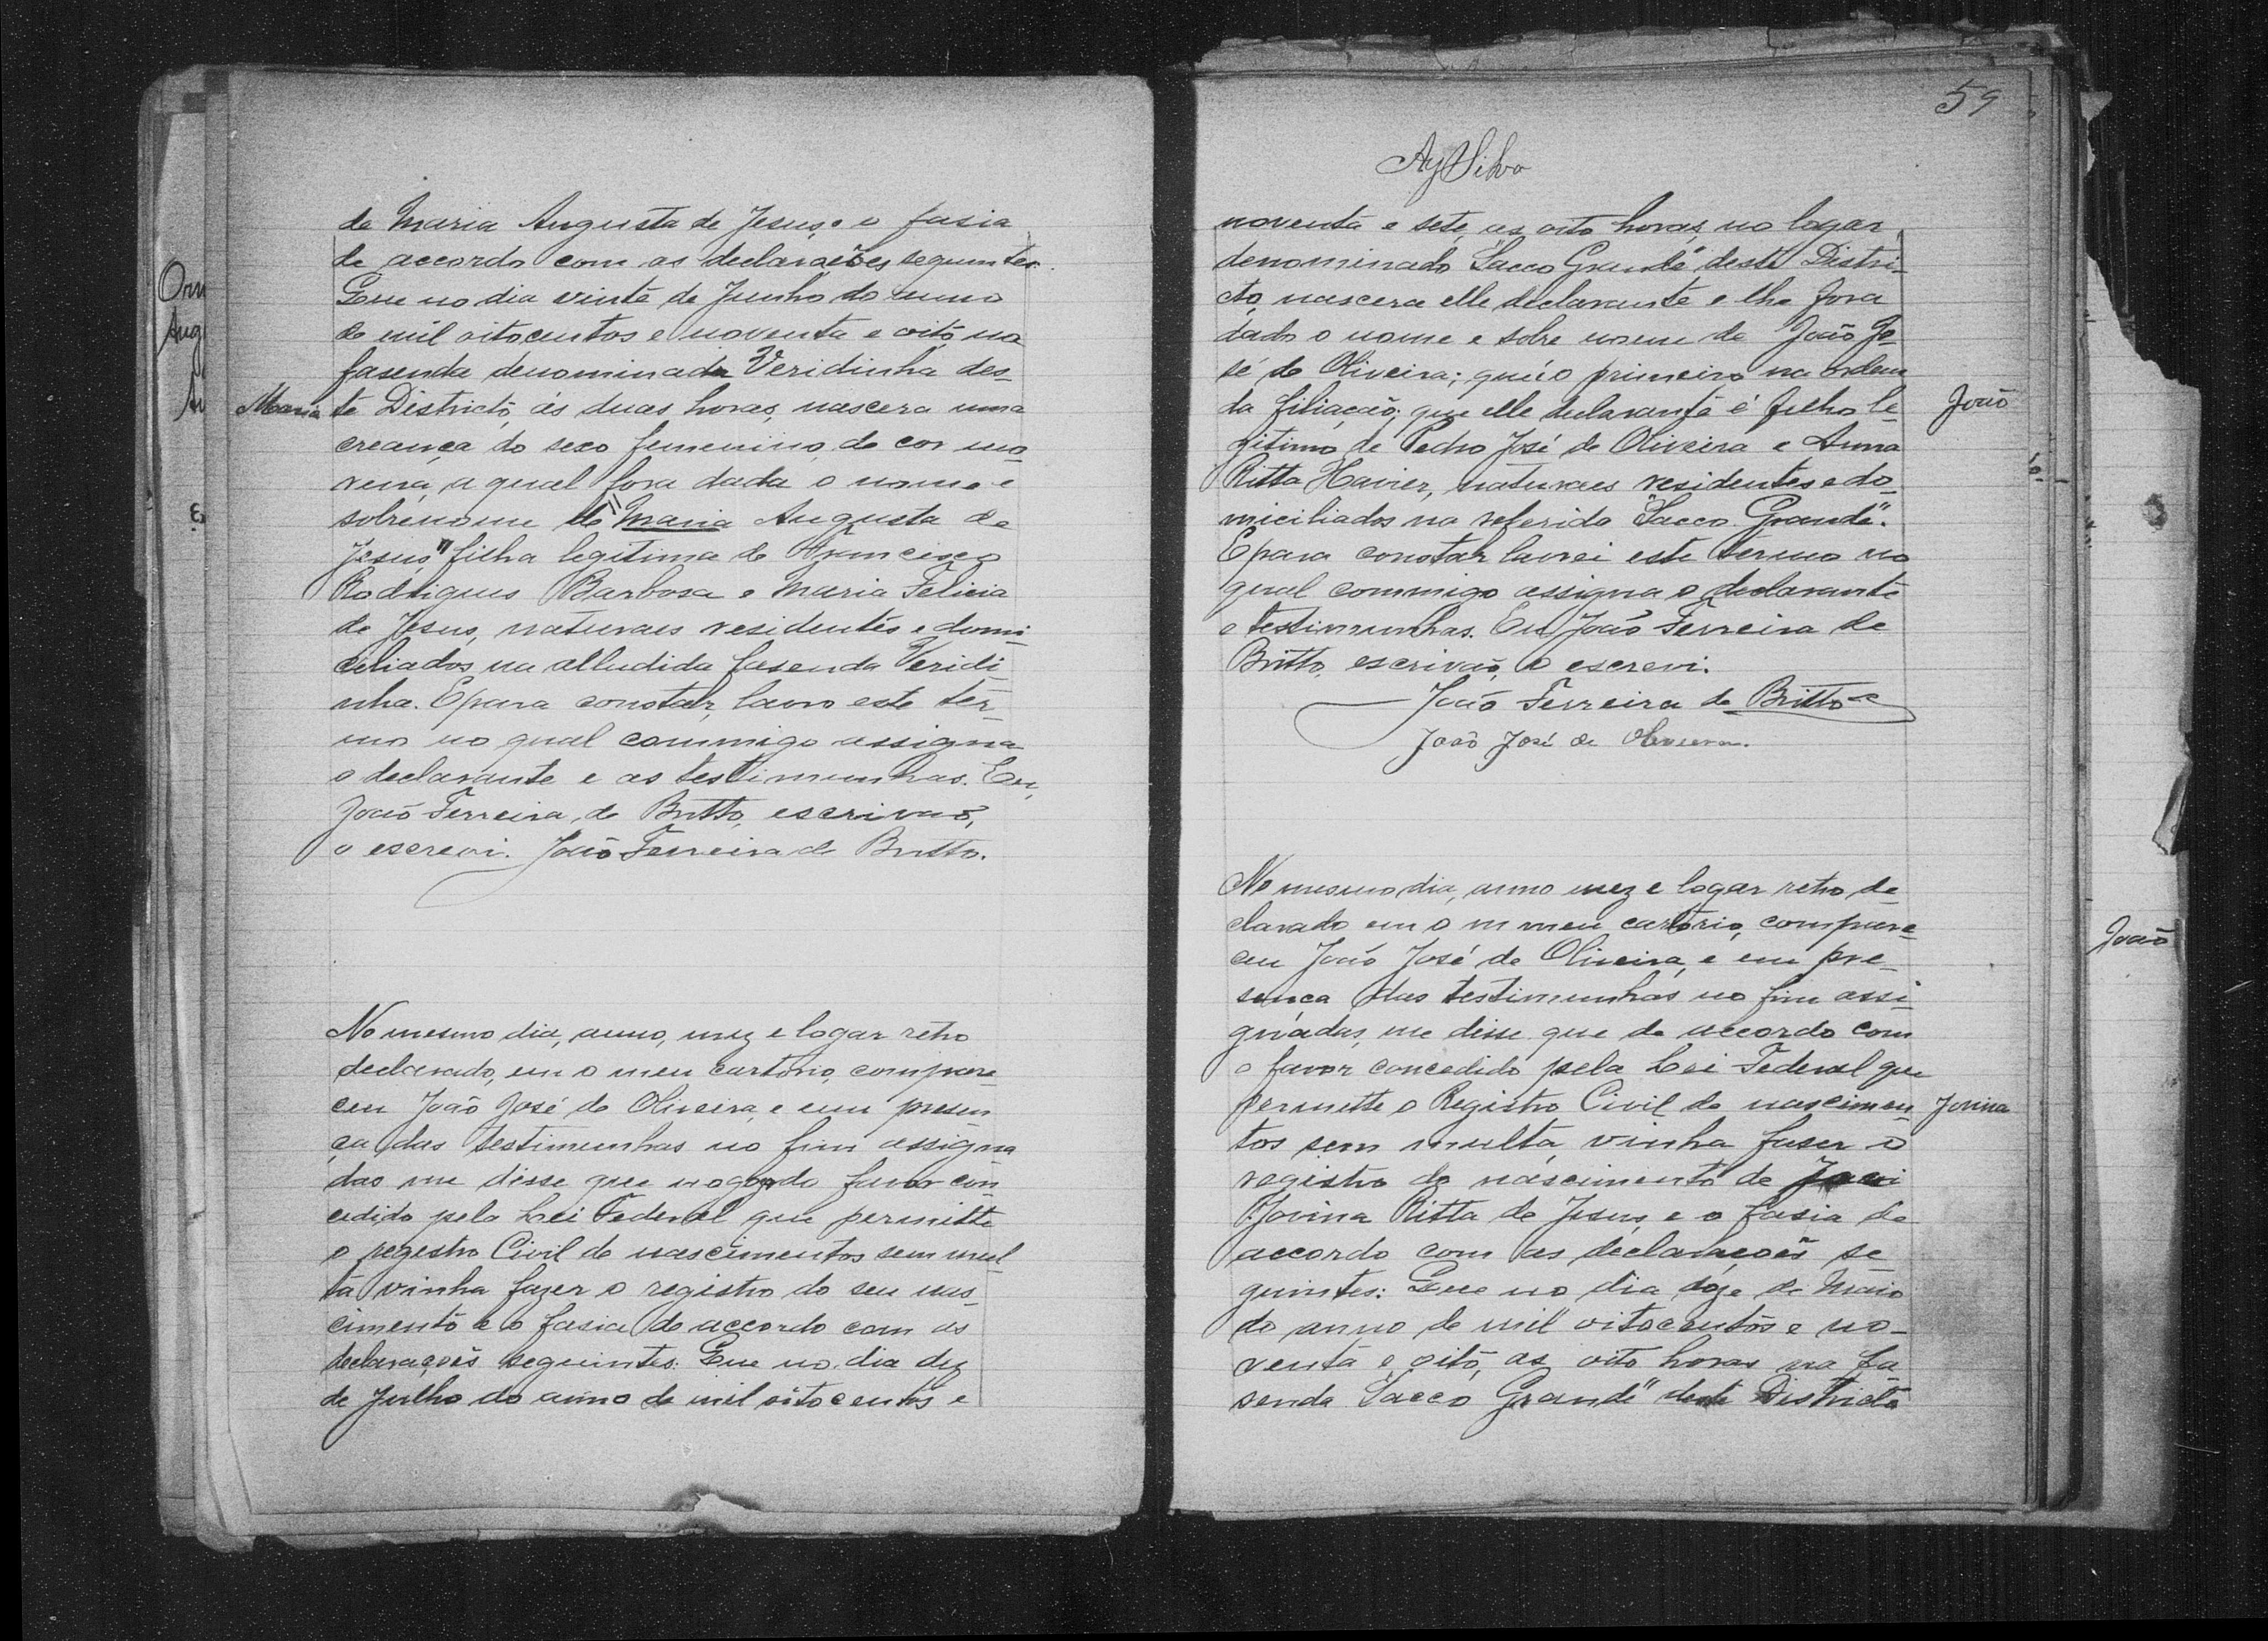 de Maria Augusta de Jesus, e o fasia
de accordo com as declarações seguintes.
Que no dia vinte de Junho do anno
de mil oitocentos e noventa e oito, na
fasenda denominada Veridinha des-
Maria
te Districto, ás duas horas, nascera uma
creança do sexo femenino, de cor mo-
rena, a qual fora dada o nome e
sobrenome de "Maria Augusta de
Jesus," filha legitima de Francisco
Rodrigues Barbosa e Maria Felicia
de Jesus, naturaes residentes e domi-
ciliados na alludida fasenda Veridi-
nha. E para constar, lavro este ter-
mo no qual commigo assigna
o declarante e as testimunhas. Eu,
João Ferreira, de Britto, escrivaõ,
o escrevi. João Ferreira de Britto.
No mesmo dia, anno, mez e logar retro
declarado, em o meu cartorio, compare-
ceu João José de Oliveira, e em presen-
ça das testimunhas no fim assigna
das me disse que no goso do favor con-
cedido pela Lei Federal que permitte
o registro Civil de nascimentos sem mul
ta vinha fazer o registro do seu nas-
cimento e o fasia de accordo com as
declaraçoẽs seguintes: Que no dia dez
de Julho do anno de mil oitocentos e
59
AySilva
noventa e sete, as oito horas, no logar
denominado "Sacco Grande" deste Distri-
cto, nascera elle declarante e lhe fora
dado o nome e sobre nome de João Jo-
sé de Oliveira; que é o primeiro na ordem
da filiaçaõ; que elle declarante é filho le-
João
gitimo de Pedro José de Oliveira e Anna
Ritta Xavier, naturaes residentes e do-
miciliados no referido "Sacco Grande".
E para constar lavrei este termo no
qual commigo assigna o declarante
e testimunhas. Eu João Ferreira de
Britto, escrivaõ, o escrevi.
João Ferreira de Britto
João José de Oliveira.
No mesmo dia, anno mez e logar retro de-
clarado em o m meu cartorio, compare-
ceu João José de Oliveira, e em pre-
sença das testimunhas no fim assi-
gnadas, me disse que de accordo com
o favor concedido pela Lei Federal que
permitte o Registro Civil de nascimen-
Jovina
tos sem multa, vinha faser o
registro de nascimento de
Jovina Ritta de Jesus, e o fasia de
accordo com as declaraçoẽs se-
guintes: Que no dia doze de Maio
do anno de mil oitocentos e no-
venta e oito, as oito horas na fa-
senda "Sacco Grande" deste Districto
João